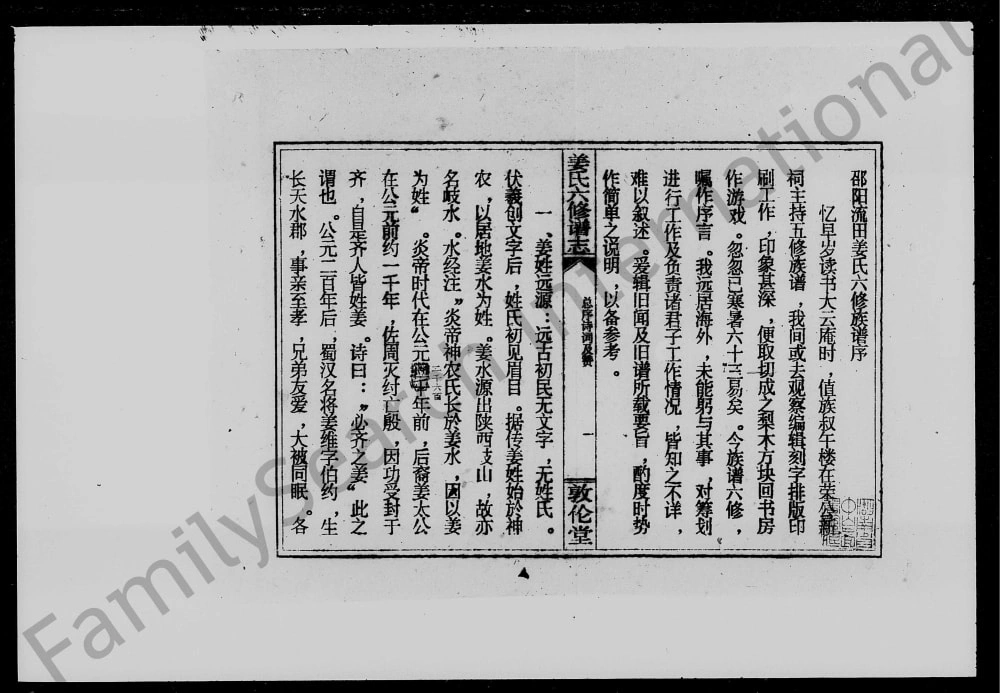 邵阳流田姜氏六修族谱序
忆早岁读书大云庵时，值族叔午楼在荣
祠主持五修族谱，我间或去观察编辑刻字排版印
刷工作，印象甚深，便取切成之梨木方块回书房
作游戏。忽忽已寒暑六十三易矣。今族谱六修，
嘱作序言。我远居海外，未能躬与其事，对筹划
进行工作及负责诸君子工作情况，皆知之不详，
难以叙述。爰辑旧闻及旧谱所载要旨，酌度时势
作简单之说明，以备参考。
姜氏六修谱志
总序诗词及
一
敦伦堂
一、姜姓远源：远古初民无文字，无姓氏。
伏羲创文字后，姓氏初见眉目。据传姜姓始於神
农，以居地姜水为姓。姜水源出陕西岐山，故亦
名岐水。水经注，“炎帝神农氏长於姜水，因以姜
为姓“。炎帝时代在公元前
二千六百
年前，后裔姜太公
在公元前约一千年，佐周灭纣亡殷，因功受封于
齐，自是齐人皆姓姜。诗曰：“必齐之姜“此之
谓也。公元二百年后，蜀汉名将姜维字伯约，生
长天水郡，事亲至孝，兄弟友爱，大被同眠。各
FamilySearch International